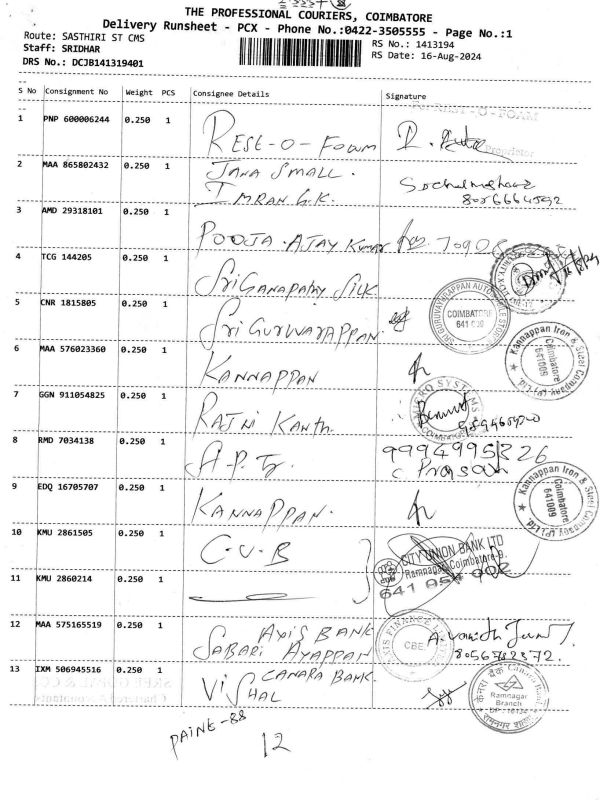 THE PROFESSIONAL COURIERS, COIMBATORE
Delivery Runsheet - PCX - Phone No.:0422-3505555 - Page No.:1
Route: SASTHIRI ST CMS
RS No.: 1413194
Staff: SRIDHAR
RS Date: 16-Aug-2024
DRS No.: DCJB141319401
S No Consignment No Weight PCS Consignee Details Signature
1 PNP 600006244 0.250 1 REST-O-FOAM
Proprietor
2 MAA 865802432 0.250 1 JANA SMALL.
IMRAN.G.K.
3 AMD 29318101 0.250 1 POOJA.AJAY Kumar
4 TCG 144205 0.250 1 Sri GANAPATHY SILK
5 CNR 1815805 0.250 1 Sri GURUVAYAPPAN
COIMBATORE
6 MAA 576023360 0.250 1 KANNAPPAN
Kannappan Iron & Steel Company (P) Ltd
Coimbatore
641009
7 GGN 911054825 0.250 1 RAJNi KANTH.
MICRO SYSTEMS
COIMBATORE
8 RMD 7034138 0.250 1 A.P.
9994995326
9 EDQ 16705707 0.250 1 KANNAPPAN.
Kannappan Iron & Steel Company (P) Ltd
Coimbatore
641009
10 KMU 2861505 0.250 1 C.U.B
CITY UNION BANK LTD
Ramnagar, Coimbatore-9.
11 KMU 2860214 0.250 1
12 MAA 575165519 0.250 1 AXIS BANK
SABARI AYAPPAN
CBE.
13 IXM 506945516 0.250 1 CANARA BANK.
VISHAL
Canara Bank
Ramnagar
Branch
12